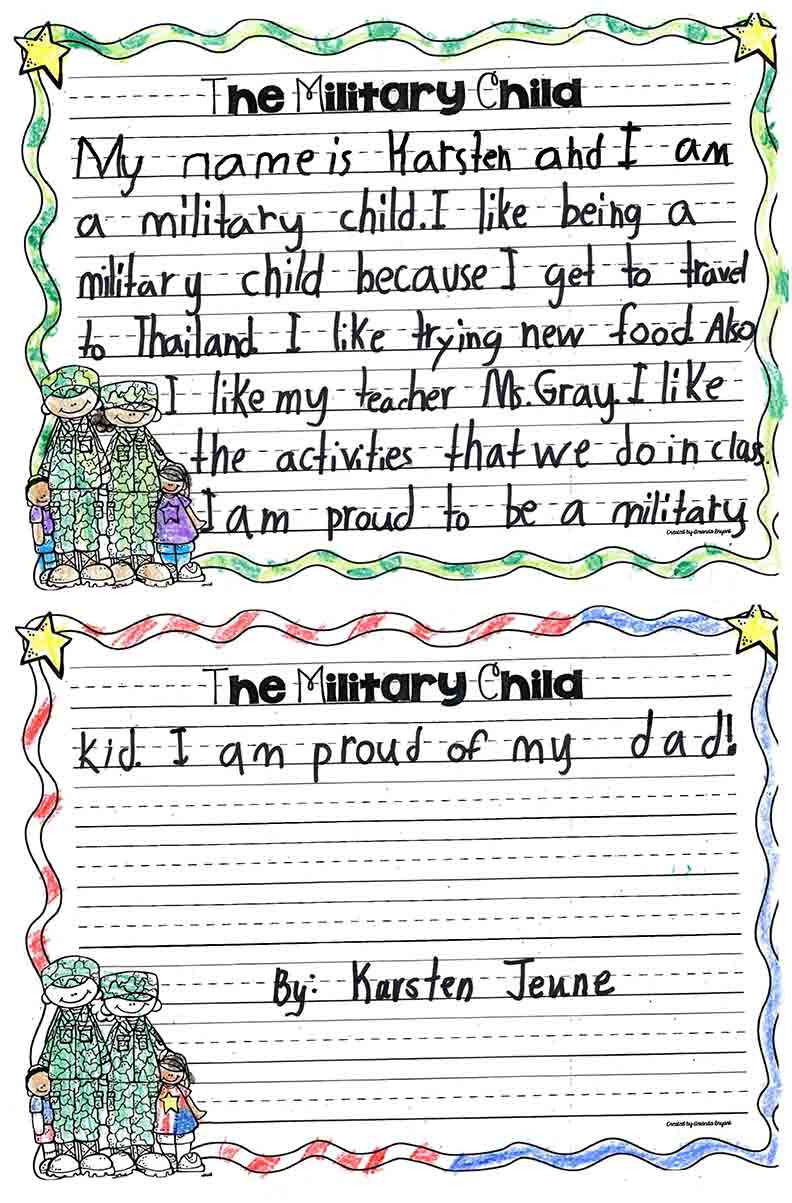 The Military Child
My name is Karsten and I am
a military child. I like being a
military child because I get to travel
to Thailand. I like trying new food. Also
I like my teacher Ms. Gray. I like
the activities that we do in class.
I am proud to be a military
Created by Amanda Bryant
The Military Child
kid. I am proud of my dad!
By: Karsten Jeune
Created by Amanda Bryant